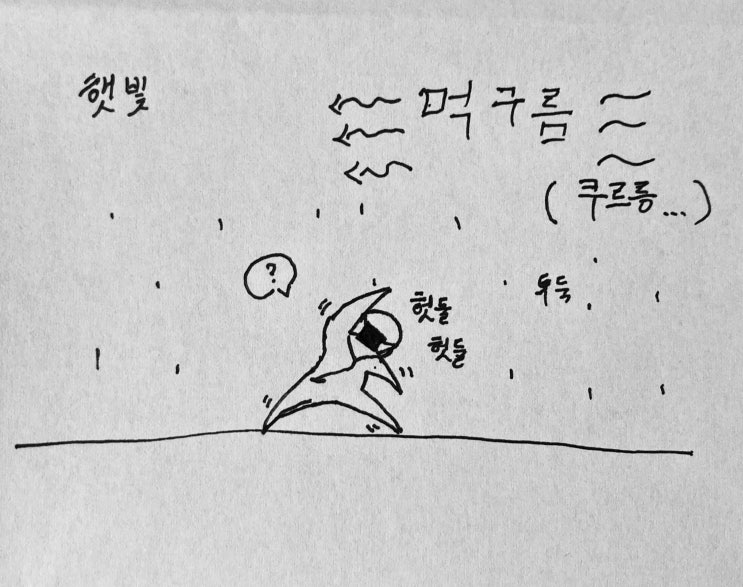 햇빛
먹구름
(쿠르릉...)
?
후둑
헛둘
헛둘